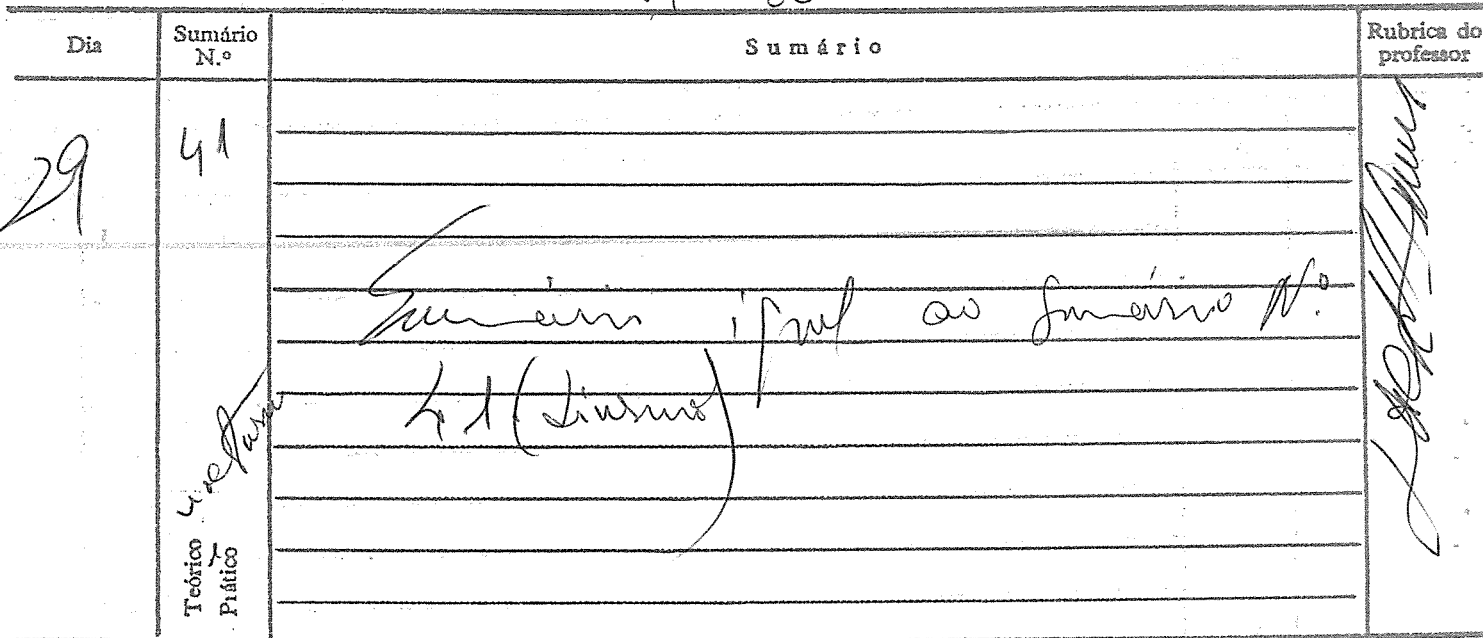 Dia
Sumário N.º
Sumário
Rubrica do professor
29
41
Sumário igual ao Sumário Nº
41 (diurno)
Teórico
Prático